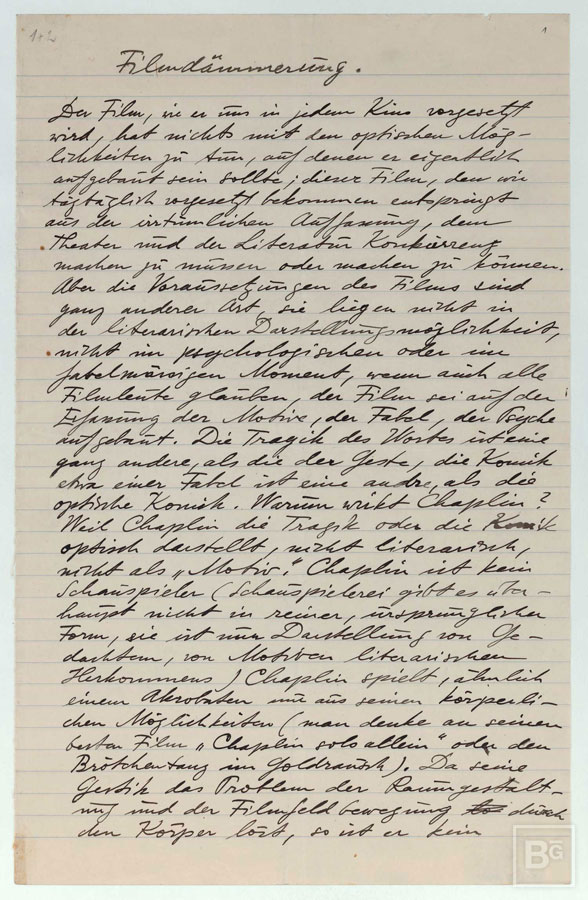 1+2
1
Filmdämmerung.
Der Film, wie er uns in jedem Kino vorgesetzt
wird, hat nichts mit den optischen Mög-
lichkeiten zu tun, auf denen er eigentlich
aufgebaut sein sollte; dieser Film, den wir
tagtäglich vorgesetzt bekommen entspringt
aus der irrtümlichen Auffassung, dem
Theater und der Literatur Konkurrenz
machen zu müssen oder machen zu können.
Aber die Voraussetzungen des Films sind
ganz anderer Art, sie liegen nicht in
der literarischen Darstellungsmöglichkeit,
nicht im psychologischen oder im
fabelmässigen Moment, wenn auch alle
Filmleute glauben, der Film sei auf der
Erfassung der Motive, der Fabel, der Psyche
aufgebaut. Die Tragik des Wortes ist eine
ganz andere, als die der Geste, die Komik
etwa einer Fabel ist eine andre, als die
optische Komik. Warum wirkt Chaplin?
Weil Chaplin die Tragik oder die Komik
optisch darstellt, nicht literarisch,
nicht als „Motiv“. Chaplin ist kein
Schauspieler (Schauspielerei gibt es über-
haupt nicht in reiner, ursprünglicher
Form, sie ist nur Darstellung von Ge-
dachtem, von Motiven literarischen
Herkommens) Chaplin spielt, ähnlich
einem Akrobaten nur aus seinen körperli-
chen Möglichkeiten (man denke an seinen
besten Film „Chaplin solo allein“ oder den
Brötchentanz im Goldrausch). Da seine
Gestik das Problem der Raumgestalt-
ung und der Filmfeldbewegung durch
den Körper löst, so ist er kein
BG